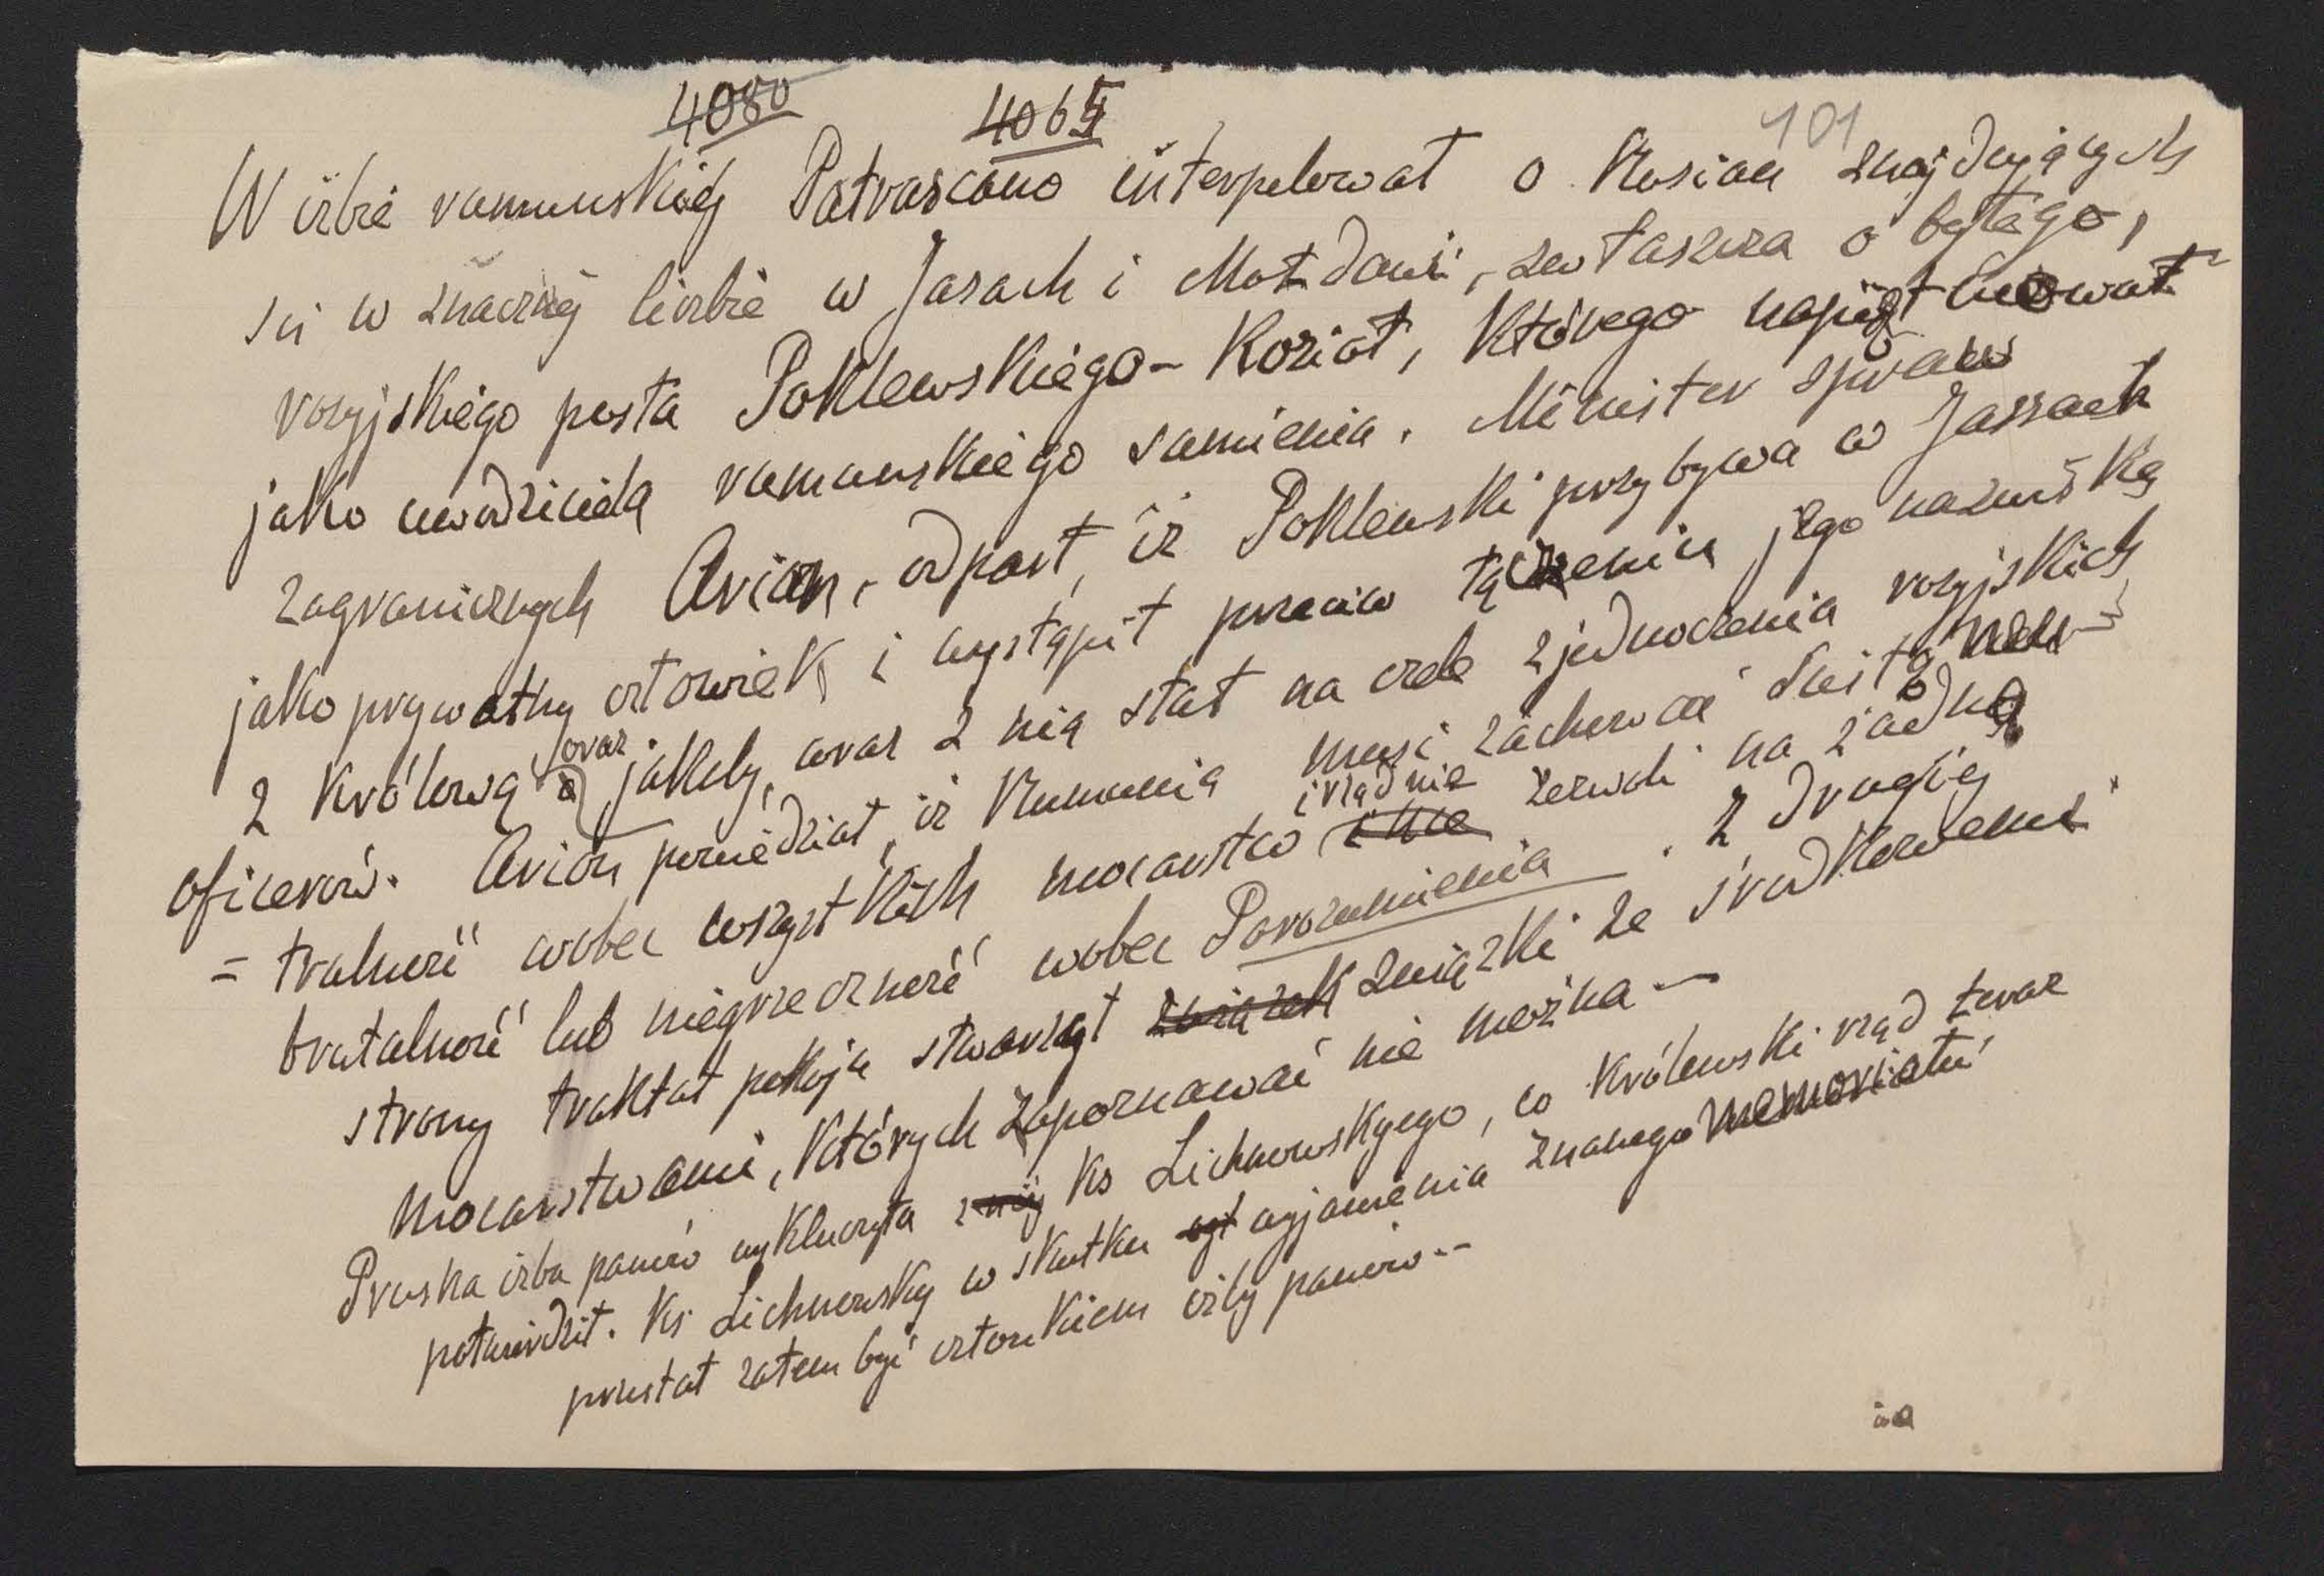 4080 4065 101
W izbie rumuńskiej Patrascano interpelował o Rosian znajdujących
się w znacznej liczbie w Jasach i Mołdawi, zwłaszcza o byłego,
rosyjskiego posła Poklewskiego-Koział, którego napiętnował
jako uwodziciela rumuńskiego sumienia. Minister spraw
zagranicznych Arion, odparł, iż Poklewski przybywa w Jassach
jako prywatny człowiek i wystąpił przeciw łączeniu jego nazwiska
z Królową oraz jakoby, oraz z nią stał na czele zjednoczenia rosyjskich
oficerów. Arion powiedział, iż Rumunia musi zachować ścisłą neu-
=tralność wobec wszystkich mocarstw i nie i rząd nie zezwoli na żadną
brutalność lub niegrzeczność wobec Porozumienia. Z drugiej
strony traktat pokoju stworzył związek związki ze środkowemi
mocarstwami, których zapoznawać nie można —
Pruska izba panów wykluczyła z niej ks Lichnowskyego, co królewski rząd teraz
potwierdził. Ks Lichnowsky w skutku wyjawienia znanego memoriału
przestał zatem być członkiem izby panów --